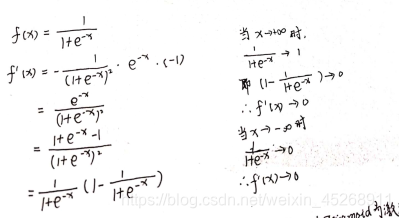 f(x) = 1/(1+e^-x)
f'(x) = - 1/(1+e^-x)² · e^-x · (-1)
= e^-x/(1+e^-x)²
= (1+e^-x-1)/(1+e^-x)²
= 1/(1+e^-x) (1 - 1/(1+e^-x))
当 x→+∞ 时,
1/(1+e^-x) → 1
即 (1 - 1/(1+e^-x)) → 0
∴ f'(x) → 0
当 x → -∞ 时
1/(1+e^-x) → 0
∴ f'(x) → 0
https://blog.csdn.net/weixin_45268911